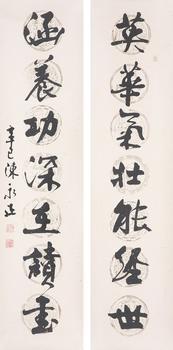 英華氣壯能經世
涵養功深在積書
辛巳陳永正